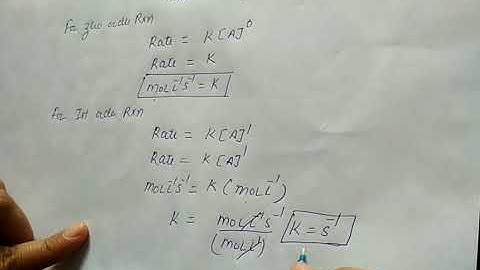 For zero order Rxn
Rate = K[A]⁰
Rate = K
mol L⁻¹s⁻¹ = K
For Ist order Rxn
Rate = K[A]¹
Rate = K[A]¹
mol L⁻¹s⁻¹ = K(mol L⁻¹)
K = mol L⁻¹s⁻¹ / (mol L⁻¹) K = s⁻¹